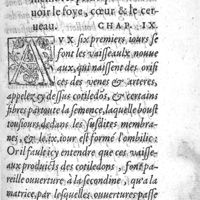 noir le foye, cœur & le cer-
ueau. CHAP. IX.
AVX six premiers iours se
font les vaisseaulx nouue
aux, qui naissent des orifi
ces des venes & arteres,
appelez cy dessus cotiledõs, & certains
fibres par toute la semence, laquelle boust
tousiours dedans les susdites membra-
nes, & le .ix. iour est formé l'ombilic.
Or il fault icy entendre que ces vaisse-
aux produicts des cotiledons, font pa-
reille ouuerture à la secondine, qu'a la
matrice, par lesquelles ouuertures passe